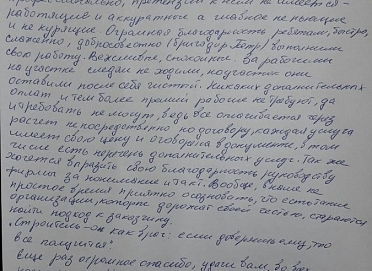 профессионально, претензий к ним не имеется -
работящие и аккуратные а главное не пьющие
и не курящие. Огромная благодарность ребятам, быстро,
слаженно, добросовестно (бригадир Петр) выполнили
свою работу. Вежливые, спокойные. За рабочими
на участке следом не ходили, но участок они
оставили после себя чистым. Никаких дополнительных
оплат, и тем более премий рабочие не требуют, да
и требовать не могут, ведь все оплачивается через
расчет непосредственно по договору, каждая услуга
имеет свою цену и оговорена в документе, в том
числе есть перечень дополнительных услуг. Так же
хочется выразить свою благодарность руководству
фирмы за понимание и такт. Вообще, в наше не
простое время приятно осознавать, что есть такие
организации, которые дорожат своей честью, стараются
найти подход к заказчику.
"Строитель - он как врач: если доверяешь ему, то
все получится"
Еще раз огромное спасибо, удачи вам, во всех